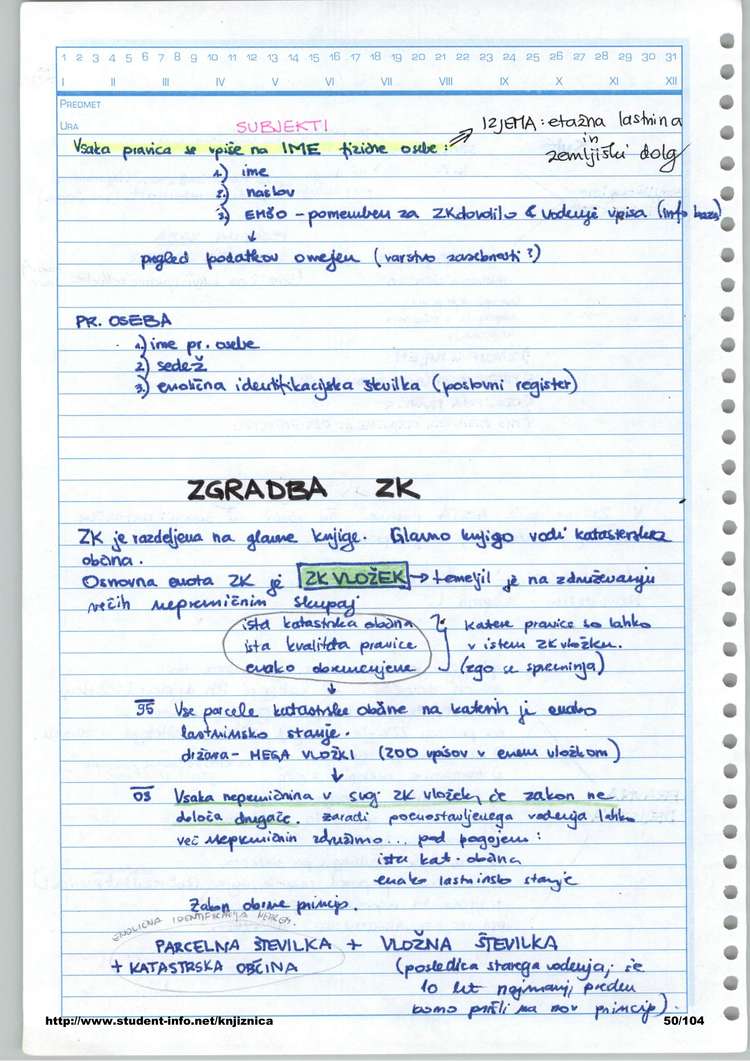 1 2 3 4 5 6 7 8 9 10 11 12 13 14 15 16 17 18 19 20 21 22 23 24 25 26 27 28 29 30 31
I II III IV V VI VII VIII IX X XI XII
PREDMET
URA
SUBJEKTI
Vsaka pravica se vpiše na IME fizične osebe :
IZJEMA : etažna lastnina
in
zemljiški dolg
1.) ime
2.) naslov
3.) EMŠO - pomemben za ZKdovolilo & vodenje vpisa (info baza)
↓
pregled podatkov omejen (varstvo zasebnosti?)
PR. OSEBA
1.) ime pr. osebe
2.) sedež
3.) enolična identifikacijska številka (poslovni register)
ZGRADBA ZK
ZK je razdeljena na glavne knjige. Glavno knjigo vodi katasterska
občina.
Osnovna enota ZK je ZK VLOŽEK → temeljil je na združevanju
večih nepremičnin skupaj
ista katastrska občina
ista kvaliteta pravice
enako obremenjene
katere pravice so lahko
v istem ZK vložku.
(zgo se spreminja)
↓
95 Vse parcele katastrske občine na katerih je enako
lastninsko stanje.
država - MEGA VLOŽKI (200 vpisov v enem vložkom)
↓
03 Vsaka nepremičnina v svoj ZK vložek, če zakon ne
določa drugače. zaradi poenostavljenega vodenja lahko
več nepremičnin združimo... pod pogojem :
ista kat. občina
enako lastninsko stanje
Zakon obrne princip.
ENOLIČNA IDENTIFIKACIJA NEPREM.
PARCELNA ŠTEVILKA + VLOŽNA ŠTEVILKA
+ KATASTRSKA OBČINA
(posledica starega vodenja; še
10 let najmanj, preden
bomo prišli na nov princip).
http://www.student-info.net/knjiznica
50/104